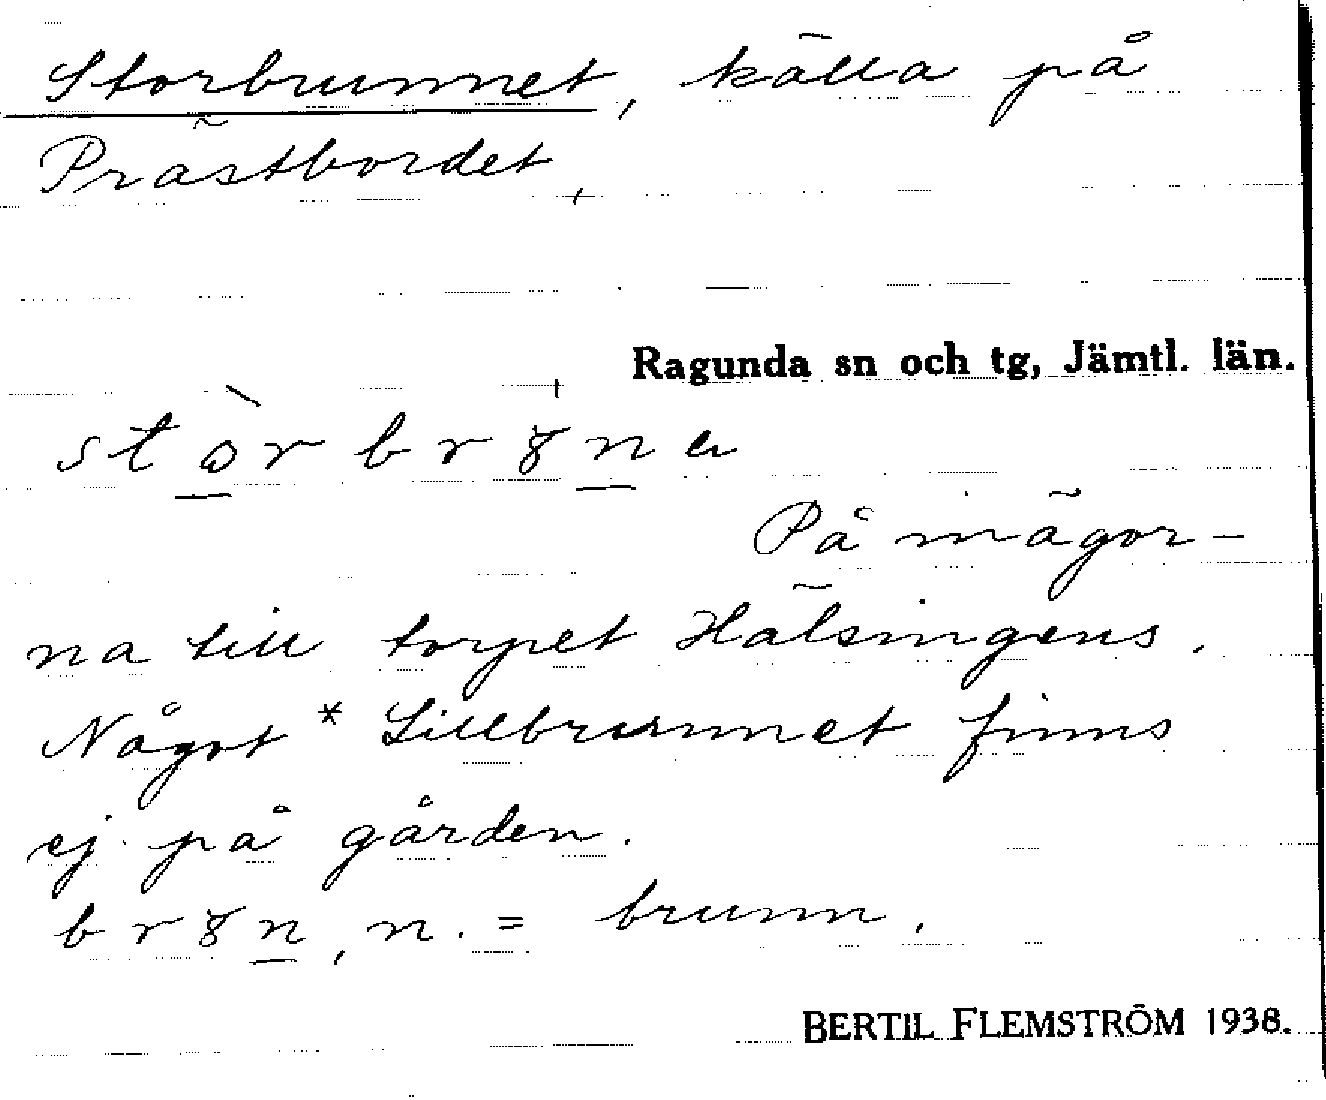 Storbrunnet, källa på
Prästbordet,
Ragunda sn och tg, Jämtl. län.
stòrbrȣn
På mägor-
na till torpet Hälsingens.
Något *Lillbrunnet finns
ej på gården.
brȣn, n. = brunn.
BERTIL FLEMSTRÖM 1938.